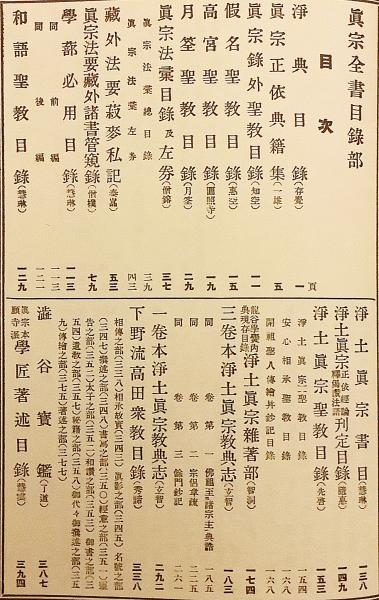 眞宗全書目錄部
目次
淨典目錄(存覺) 一
頁
眞宗正依典籍集(一雄) 五
眞宗錄外聖教目錄(知空) 一一
假名聖教目錄(惠空) 一五
高宮聖教目錄(圓照寺) 一九
月筌聖教目錄(月筌) 二九
眞宗法彙目錄及左券(僧鎔) 三七
眞宗法彙總目錄 三九
眞宗法彙左券 四三
藏外法要菽麥私記(泰嵓) 五三
眞宗法要藏外諸書管窺錄(僧樸) 七九
學部必用目錄(慧琳) 一一三
同前編 一一三
同後編 一二一
和語聖教目錄(慧琳) 一二九
淨土眞宗書目 一三八
淨土眞宗依憑經論釋偽製法語刊定目錄 一四九
淨土眞宗聖教目錄(先啓) 一五三
淨土眞宗聖教目錄 一五四
安心相承聖教目錄 一六〇
開祖聖人傳繪幷鈔記目錄 一六八
龍谷學黌內典現存目錄淨土眞宗雜著部(智洞) 一七四
三卷本淨土眞宗教典志(玄智) 一八三
同卷第一佛祖王諸宗主典誥 一八五
同卷第二宗侶章疏 二〇一
同卷第三餘門鈔記 二六一
一卷本淨土眞宗教典志(玄智) 二九二
下野流高田衆教目錄(秀諦) 三三八
相傳之部(三三八)相承故實(三四三)眞影之部(三四五)名號之部
(三四七)撰述之部(三四八)書寫之部(三五〇)經意之部(三五一)靈
告之部(三五二)太子之部(三五二)和讚之部(三五三)御書之部(三
五四)道教之部(三五七)秘籍之部(三五八)御代々御撰述之部(三五
九)傳繪之部(三七五)著述之部(三七七)
澁谷寶鑑(了道) 三八七
眞宗本願寺派學匠著述目錄(慧雲) 三九四